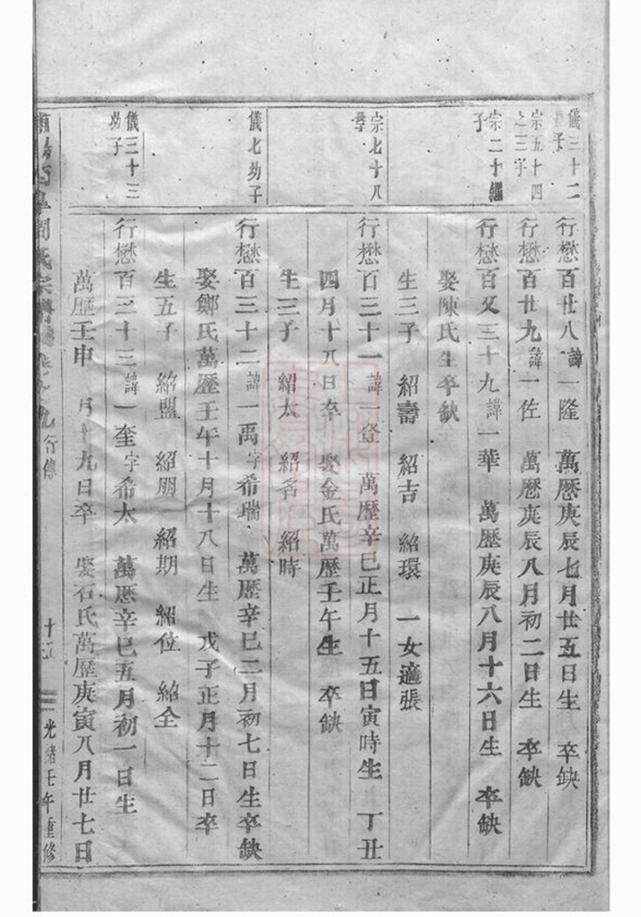 儀三十二
子
行懋百廿八諱一隆 萬曆庚辰七月廿五日生 卒缺
宗五十四
之三子
行懋百廿九諱一佐 萬曆庚辰八月初二日生 卒缺
宗二十繼
子
行懋百又三十九諱一華 萬曆庚辰八月十六日生 卒缺
娶陳氏生卒缺
生三子 紹壽 紹吉 紹環 一女適張
宗七十八
行懋百三十一諱一登 萬歷辛巳正月十五日寅時生 丁丑
四月十八日卒 娶金氏萬歷壬午生 卒缺
生三子 紹太 紹名 紹時
儀七幼子
行懋百三十二諱一禹字希瑞 萬歷辛巳二月初七日生卒缺
娶鄭氏萬歷壬午十月十八日生 戊子正月十二日卒
生五子 紹盟 紹朋 紹期 紹位 紹全
儀三十三
幼子
行懋百三十三諱一奎字希太 萬歷辛巳五月初一日生
萬歷壬申 月十九日卒 娶石氏萬歷庚寅八月廿七日
氏宗譜 行傳 光緒壬午重修